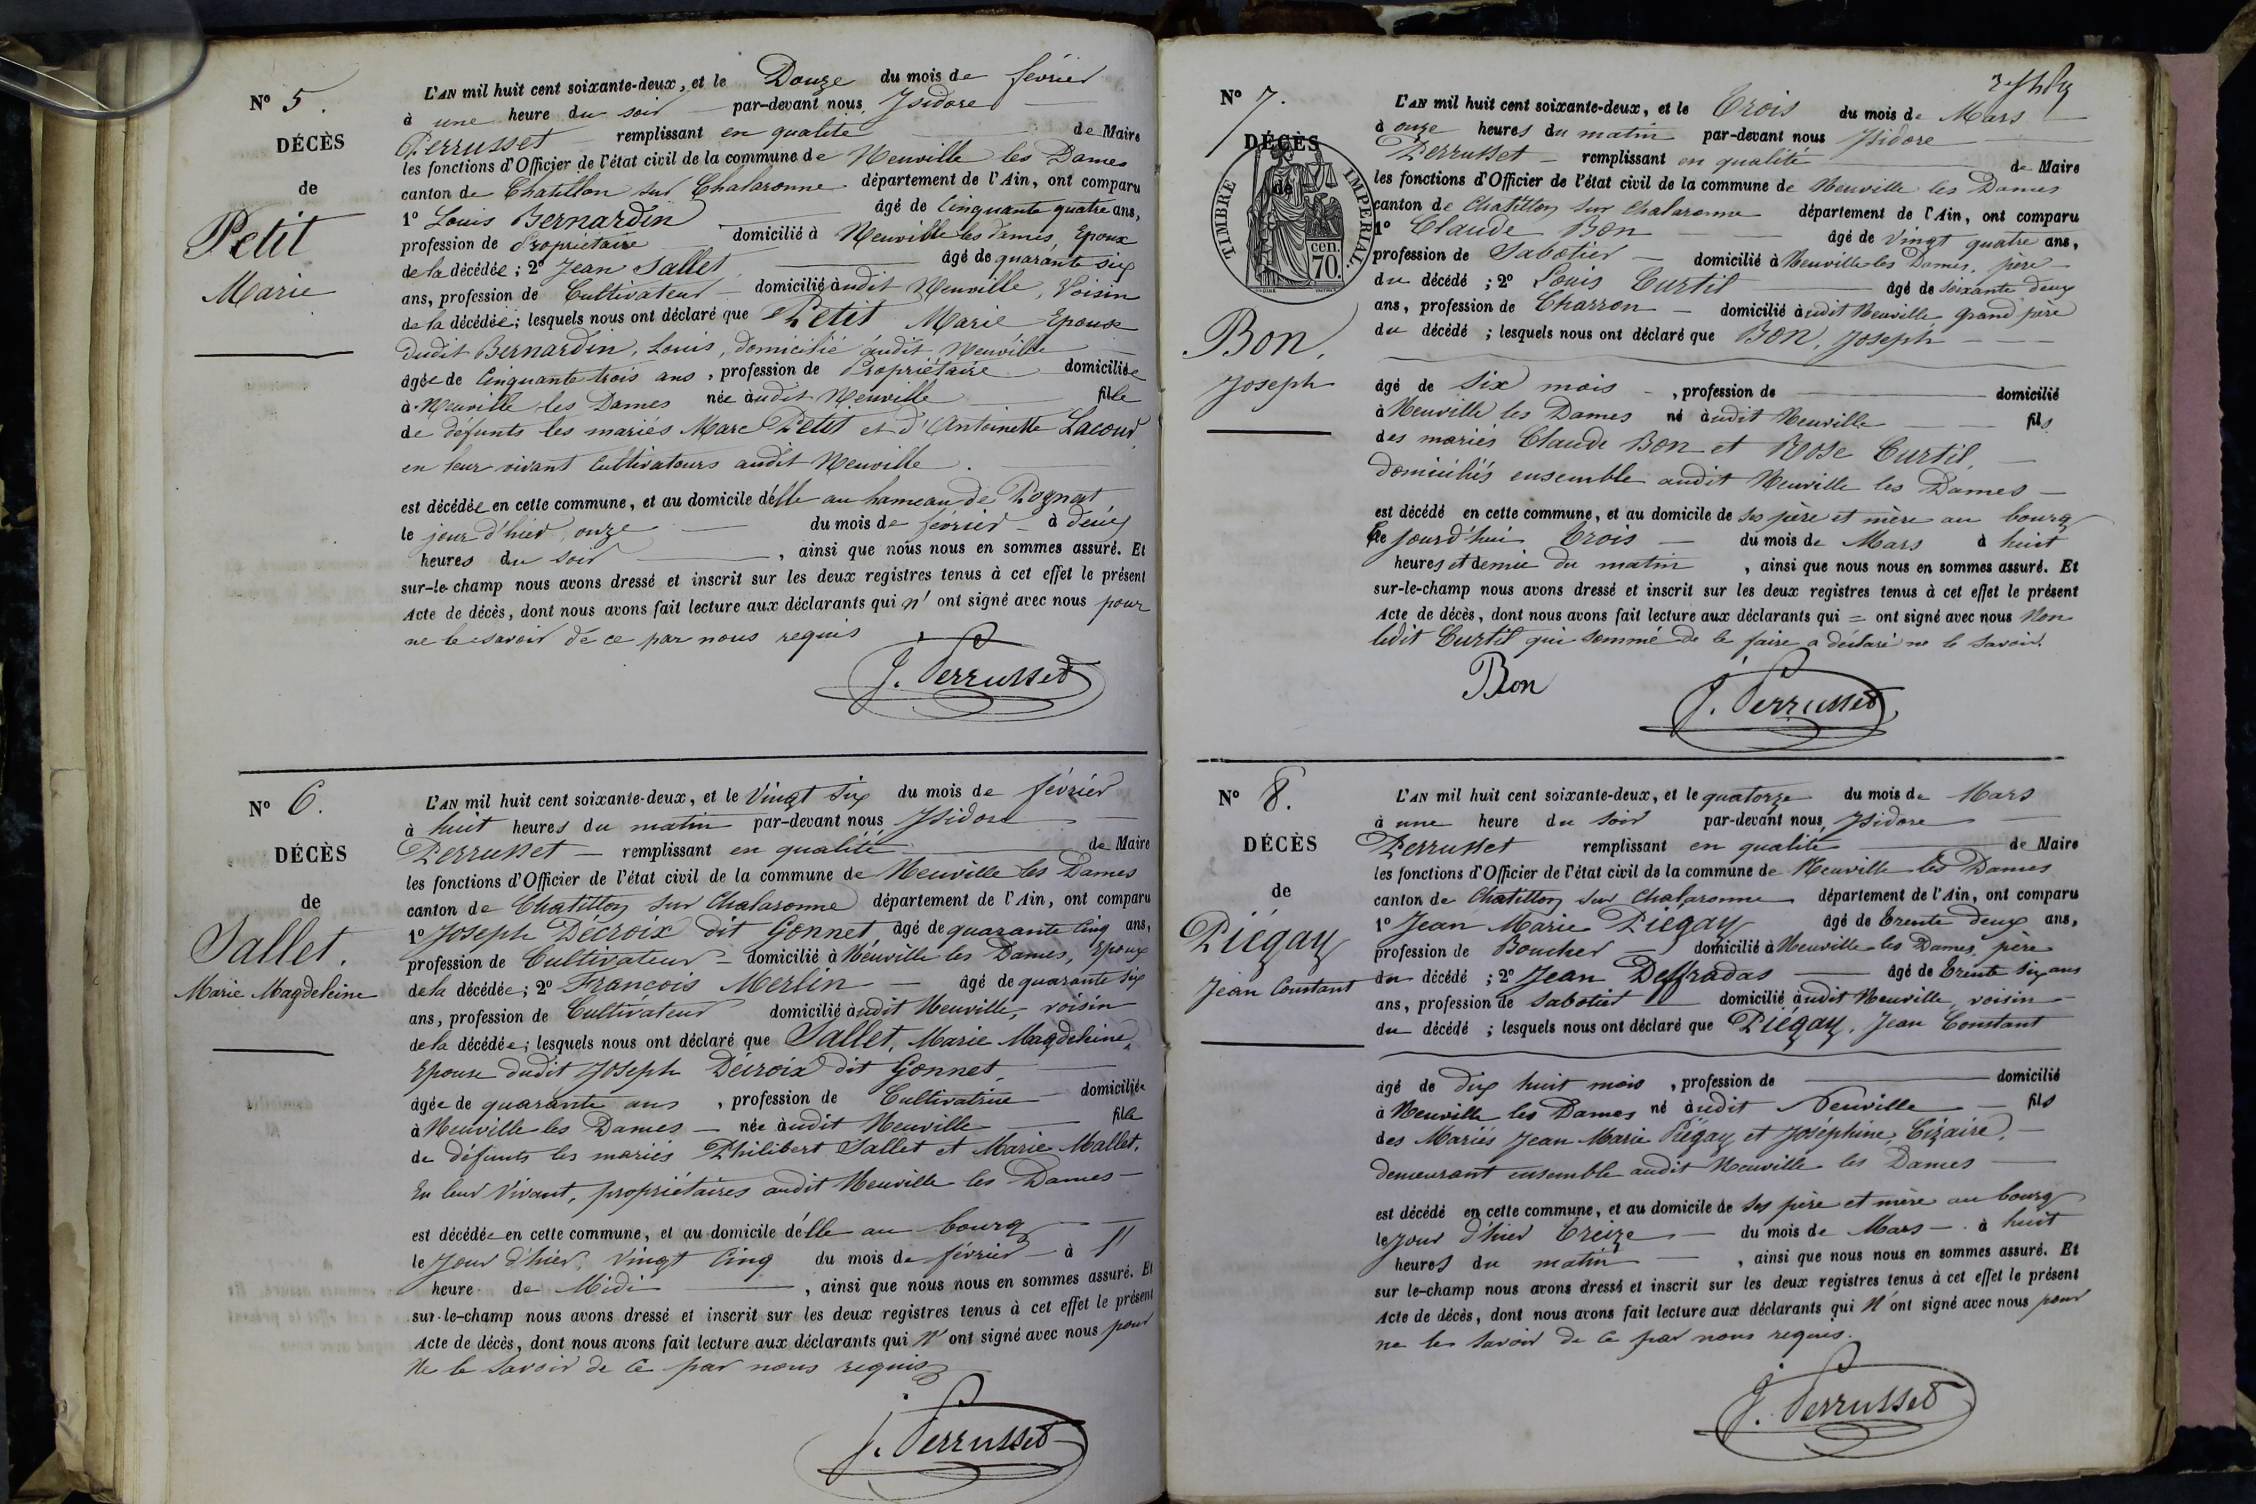 N° 5.
DÉCÈS
de
Petit
Marie
L'AN mil huit cent soixante-deux, et le Douze du mois de février
à une heure du soir par-devant nous Isidore
Perrusset remplissant en qualité de Maire
les fonctions d'Officier de l'état civil de la commune de Neuville les Dames
canton de Chatillon sur Chalaronne département de l'Ain, ont comparu
1° Louis Bernardin âgé de Cinquante quatre ans,
profession de Propriétaire domicilié à Neuville les Dames, Epoux
de la décédée ; 2° Jean Sallet âgé de quarante six
ans, profession de Cultivateur domicilié àudit Neuville, Voisin
de la décédée ; lesquels nous ont déclaré que Petit Marie Epouse
dudit Bernardin, Louis, domicilié audit Neuville
âgée de Cinquante trois ans, profession de Propriétaire domiciliée
à Neuville les Dames née àudit Neuville fille
de defunts les mariés Marc Petit et d'Antoinette Lacour
en leur vivant Cultivateurs audit Neuville.
est décédée en cette commune, et au domicile d'elle au hameau de Pognat
le jour d'hier, onze du mois de février à deux
heures du soir, ainsi que nous nous en sommes assuré. Et
sur-le-champ nous avons dressé et inscrit sur les deux registres tenus à cet effet le présent
Acte de décès, dont nous avons fait lecture aux déclarants qui n'ont signé avec nous pour
ne le savoir de ce par nous requis
J. Perrusset
N° 6.
DÉCÈS
de
Sallet.
Marie Magdeleine
L'AN mil huit cent soixante-deux, et le Vingt six du mois de février
à huit heures du matin par-devant nous Isidore
Perrusset remplissant en qualité de Maire
les fonctions d'Officier de l'état civil de la commune de Neuville les Dames
canton de Chatillon sur Chalaronne département de l'Ain, ont comparu
1° Joseph Décroix dit Gonnet âgé de quarante Cinq ans,
profession de Cultivateur domicilié à Neuville les Dames, Epoux
de la décédée ; 2° François Merlin âgé de quarante six
ans, profession de Cultivateur domicilié àudit Neuville, voisin
de la décédée ; lesquels nous ont déclaré que Sallet, Marie Magdeleine,
Epouse dudit Joseph Décroix dit Gonnet,
âgée de quarante ans, profession de Cultivatrice domiciliée
à Neuville les Dames née àudit Neuville fille
de défunts les mariés Philibert Sallet et Marie Mallet,
En leur Vivant, propriétaires audit Neuville les Dames
est décédée en cette commune, et au domicile d'elle au bourg
le Jour d'hier, Vingt Cinq du mois de février à l'
heure de Midi, ainsi que nous nous en sommes assuré. Et
sur-le-champ nous avons dressé et inscrit sur les deux registres tenus à cet effet le présent
Acte de décès, dont nous avons fait lecture aux déclarants qui N'ont signé avec nous pour
Ne le Savoir de Ce par nous requis
J. Perrusset
N° 7.
DÉCÈS
de
TIMBRE IMPÉRIAL.
cen.
70.
Bon,
Joseph
L'AN mil huit cent soixante-deux, et le Trois du mois de Mars
à onze heures du matin par-devant nous Isidore
Perrusset remplissant en qualité de Maire
les fonctions d'Officier de l'état civil de la commune de Neuville les Dames
canton de Chatillon sur Chalaronne département de l'Ain, ont comparu
1° Claude Bon âgé de Vingt quatre ans,
profession de Sabotier domicilié à Neuville les Dames, père
du décédé ; 2° Louis Curtil âgé de soixante deux
ans, profession de Charron domicilié àudit Neuville grand père
du décédé ; lesquels nous ont déclaré que Bon, Joseph
âgé de six mois, profession de domicilié
à Neuville les Dames né àudit Neuville fils
des mariés Claude Bon et Rose Curtil,
domiciliés ensemble audit Neuville les Dames
est décédé en cette commune, et au domicile de ses père et mère au bourg
Ce jourd'hui Trois du mois de Mars à huit
heures et demie du matin, ainsi que nous nous en sommes assuré. Et
sur-le-champ nous avons dressé et inscrit sur les deux registres tenus à cet effet le présent
Acte de décès, dont nous avons fait lecture aux déclarants qui = ont signé avec nous Non
ledit Curtil qui sommé de le faire a déclaré ne le savoir.
Bon
J. Perrusset
N° 8.
DÉCÈS
de
Piégay
Jean Constant
L'AN mil huit cent soixante-deux, et le quatorze du mois de Mars
à une heure du soir par-devant nous Isidore
Perrusset remplissant en qualité de Maire
les fonctions d'Officier de l'état civil de la commune de Neuville les Dames
canton de Chatillon sur Chalaronne département de l'Ain, ont comparu
1° Jean Marie Piégay âgé de trente deux ans,
profession de Boucher domicilié à Neuville les Dames, père
du décédé ; 2° Jean Deffradas âgé de trente six ans
ans, profession de Sabotier domicilié àudit Neuville, voisin
du décédé ; lesquels nous ont déclaré que Piégay, Jean Constant
âgé de dix huit mois, profession de domicilié
à Neuville les Dames né àudit Neuville fils
des Mariés Jean Marie Piégay et Joséphine Cizaire,
demeurant ensemble audit Neuville les Dames
est décédé en cette commune, et au domicile de ses père et mère au bourg
le Jour d'hier treize du mois de Mars à huit
heures du matin, ainsi que nous nous en sommes assuré. Et
sur le-champ nous avons dressé et inscrit sur les deux registres tenus à cet effet le présent
Acte de décès, dont nous avons fait lecture aux déclarants qui N'ont signé avec nous pour
ne le savoir de ce par nous requis.
J. Perrusset